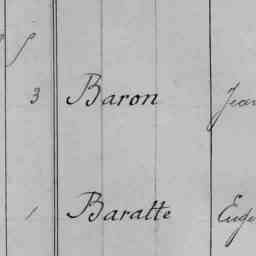 3 Baron Jean
1 Baratte Euge